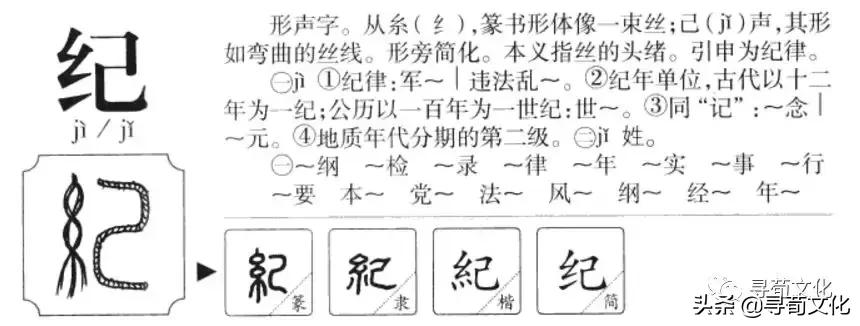 纪
jì / jǐ
形声字。从糸(纟),篆书形体像一束丝;己(jǐ)声,其形
如弯曲的丝线。形旁简化。本义指丝的头绪。引申为纪律。
㊀jì ①纪律:军～｜违法乱～。②纪年单位,古代以十二
年为一纪;公历以一百年为一世纪:世～。③同“记”:～念｜
～元。④地质年代分期的第二级。㊁jǐ 姓。
㊀～纲 ～检 ～录 ～律 ～年 ～实 ～事 ～行
～要 本～ 党～ 法～ 风～ 纲～ 经～ 年～
紀 紀 紀 纪
篆 隶 楷 简
寻荀文化
头条 @寻荀文化